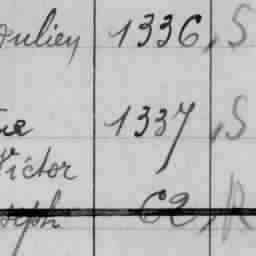 Julien 1336, S
1337, S
Victor
62, R